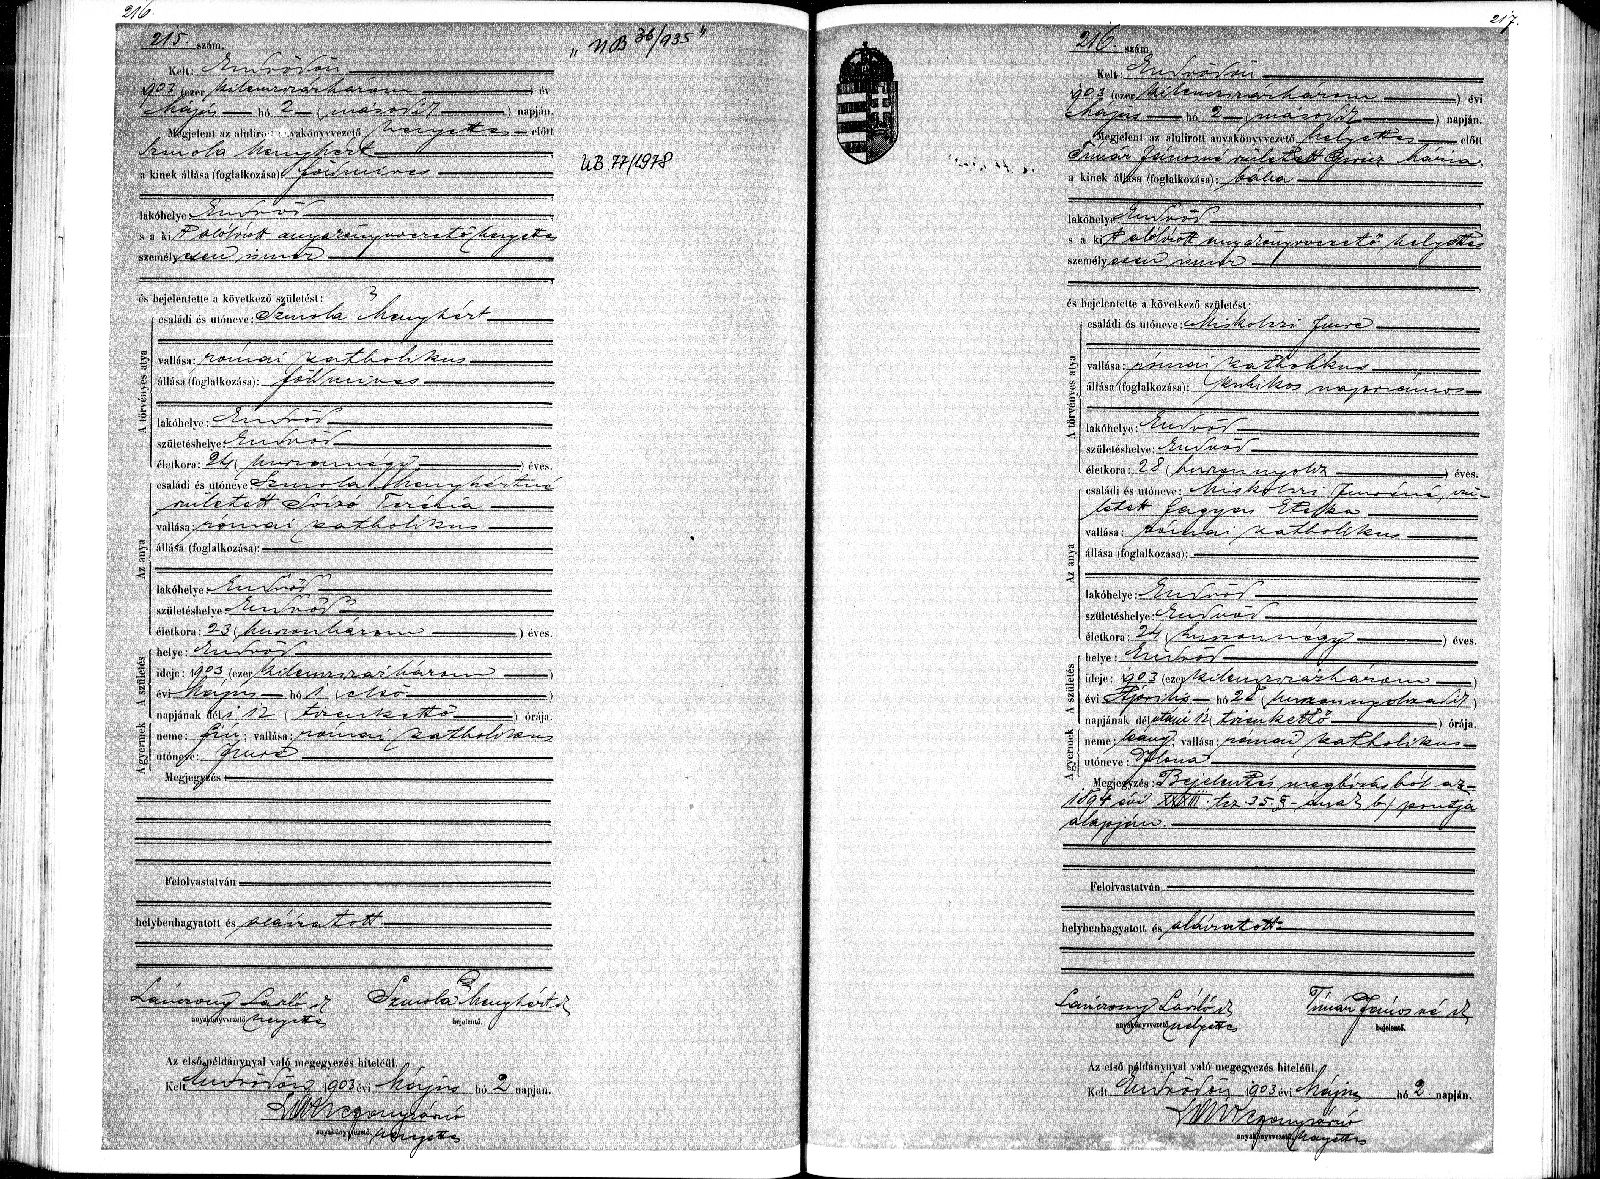 216
215 szám.
„ UB 36/935 "
Kelt: Endrődön
903 (ezer kilenczszázhárom) év
Május hó 2 (második) napján.
Megjelent az alulirott anyakönyvvezető helyettes előtt
Szmola Menyhért
a kinek állása (foglalkozása): földmives
UB 77/1978
lakóhelye: Endrőd
s a kit alólirott anyakönyvvezető helyettes
személyesen ismer
és bejelentette a következő születést:
A törvényes atya
családi és utóneve: Szmola Menyhért
vallása: római katholikus
állása (foglalkozása): földmives
lakóhelye: Endrőd
születéshelye: Endrőd
életkora: 24 (huszonnégy) éves.
Az anya
családi és utóneve Szmola Menyhértné
született Soizó Terézia
vallása: római katholikus
állása (foglalkozása):
lakóhelye: Endrőd
születéshelye Endrőd
életkora: 23 (huszonhárom) éves.
A születés
helye: Endrőd
ideje: 1903 (ezer kilenczszázhárom)
évi Május hó 1 (első)
napjának déli 12 (tizenkettő) órája.
A gyermek
neme: fiú; vallása: római katholikus
utóneve: Imre
Megjegyzés
Felolvastatván
helybenhagyatott és aláiratott
László Szmola Menyhért
anyakönyvvezető helyettes bejelentő.
Az első példánynyal való megegyezés hiteléül.
Kelt Endrődön 1903 évi Május hó 2 napján.
anyakönyvvezető helyettes
217.
216 szám
Kelt: Endrődön
903 (ezer kilenczszázhárom) évi
Május hó 2 (második) napján.
Megjelent az alulirott anyakönyvvezető helyettes előtt
Timár Jánosné született Mária
a kinek állása (foglalkozása): bába
lakóhelye Endrőd
s a kit alólirott anyakönyvvezető helyettes
személyesen ismer
és bejelentette a következő születést:
A törvényes atya
családi és utóneve: Miskolczi Imre
vallása: római katholikus
állása (foglalkozása): kubikos napszámos
lakóhelye: Endrőd
születéshelye: Endrőd
életkora: 28 (huszonnyolcz) éves.
Az anya
családi és utóneve: Miskolczi Imréné, szü-
letett Fagyas Etelka
vallása: római katholikus
állása (foglalkozása):
lakóhelye: Endrőd
születéshelye: Endrőd
életkora: 24 (huszonnégy) éves.
A születés
helye: Endrőd
ideje: 1903 (ezer kilenczszázhárom)
évi Április hó 28 (huszonnyolczadik)
napjának délutáni 12 (tizenkettő) órája.
A gyermek
neme leány; vallása: római katholikus
utóneve: Ilona
Megjegyzés: Bejelentés megbizásból az
1894 évi XXXIII. tcz 35. §-ának b/ pontja
alapján.
Felolvastatván
helybenhagyatott és aláiratott
László Timár Jánosné
anyakönyvvezető helyettes bejelentő.
Az első példánynyal való megegyezés hiteléül.
Kelt Endrődön 1903 évi Május hó 2 napján.
anyakönyvvezető helyettes